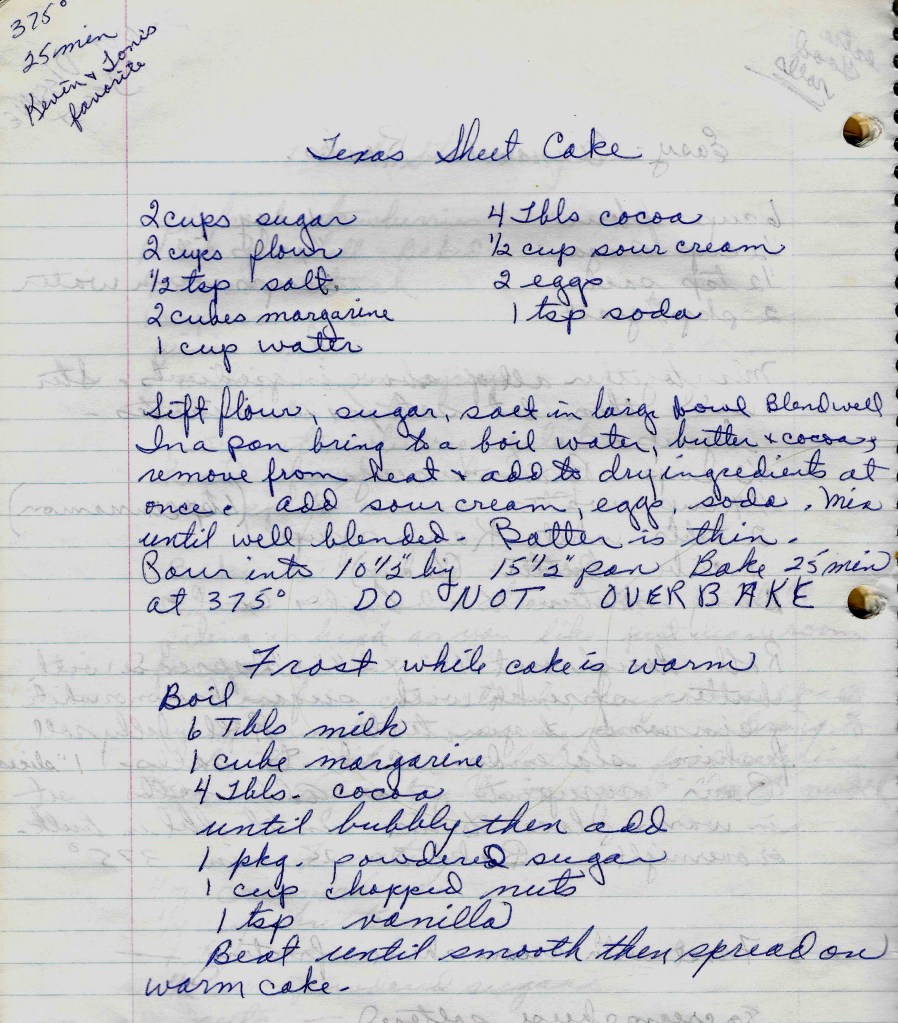 375°
25 min
Kevin & Tonis
favorite
Texas Sheet Cake
2 cups sugar
2 cups flour
1/2 tsp salt
2 cubes margarine
1 cup water
4 Tbls cocoa
1/2 cup sour cream
2 eggs
1 tsp soda
Sift flour, sugar, salt in large bowl Blend well
In a pan bring to a boil water, butter & cocoa,
remove from heat & add to dry ingredients at
once. add sour cream, eggs, soda. Mix
until well blended. Batter is thin.
Pour into 10 1/2" by 15 1/2" pan Bake 25 min
at 375° DO NOT OVERBAKE
Frost while cake is warm
Boil
6 Tbls milk
1 cube margarine
4 Tbls. cocoa
until bubbly then add
1 pkg. powdered sugar
1 cup chopped nuts
1 tsp vanilla
Beat until smooth then spread on
warm cake.